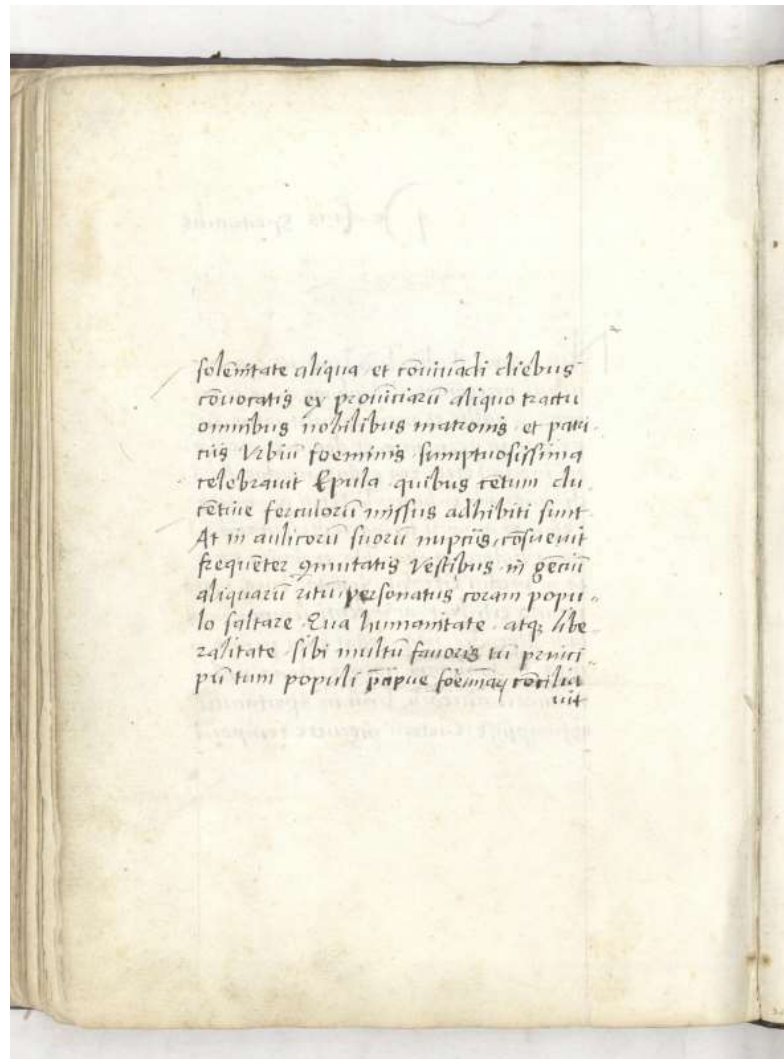 solēnitate aliqua et cōviuādi diebus
cōvocatis ex provīciarū aliquo tractu
omnibus nobilibus matronis et patri-
ciis Vrbiū foeminis sumptuosissima
celebravit Epula quibus cētum du
cētive ferculorū missus adhibiti sunt
At in aulicorū suorū nuptiis, cōsuevit
frequēter 9mutatis vestibus in gēciū
aliquarū ritū personatus coram popu-
lo saltare Qua humanitate atq; libe
ralitate sibi multū favoris tū princi-
pū tum populi p̄cipue foeminarꝝ cōcilia
vit